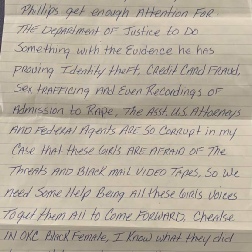 Phillips get enough Attention FOR
THE DEPARTMENT OF JUSTICE TO DO
Something with the Evidence he has
PROVING Identity theft, Credit Card FRAUD,
SEX TRAFFICING AND EVEN RECORDINGS OF
Admission to RAPE, The Asst. U.S. Attorneys
AND FEDERAL Agents ARE SO CORRUPT in my
CASE that these GIRLS ARE AFRAID OF THE
THREATS AND BLACK MAIL VIDEO TAPES, SO WE
NEED SOME Help Being All these GIRLS VOICES
TO get them All to Come FORWARD, Chealse
IN OKC Black Female, I Know what they did